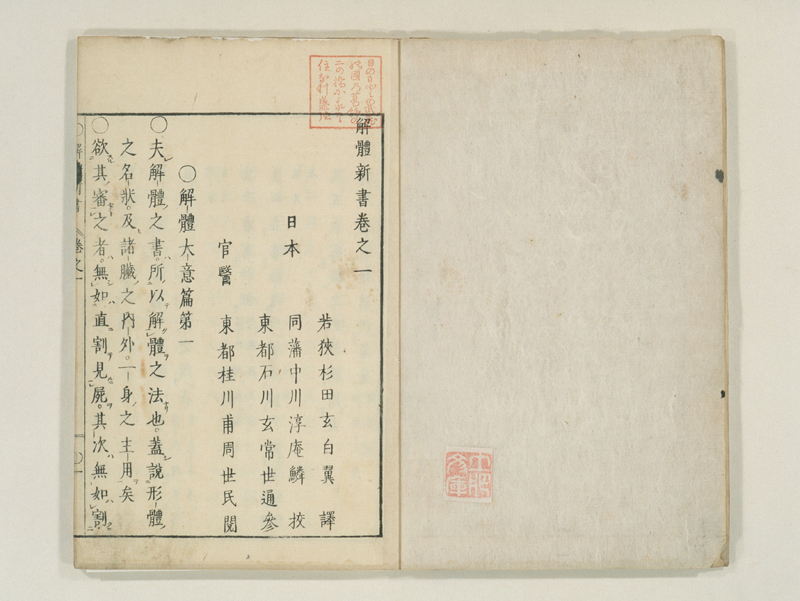 解體新書卷之一
若狹杉田玄白翼譯
日本
同藩中川淳庵鱗挍
東都石川玄常世通參
官醫
東都桂川甫周世民閱
〇解體大意篇第一
〇夫解體之書。所以解體之法也。蓋說形體
之名狀。及諸臟之內外。一身之主用矣
〇欲其審之者。無如直割見屍。其次無如割